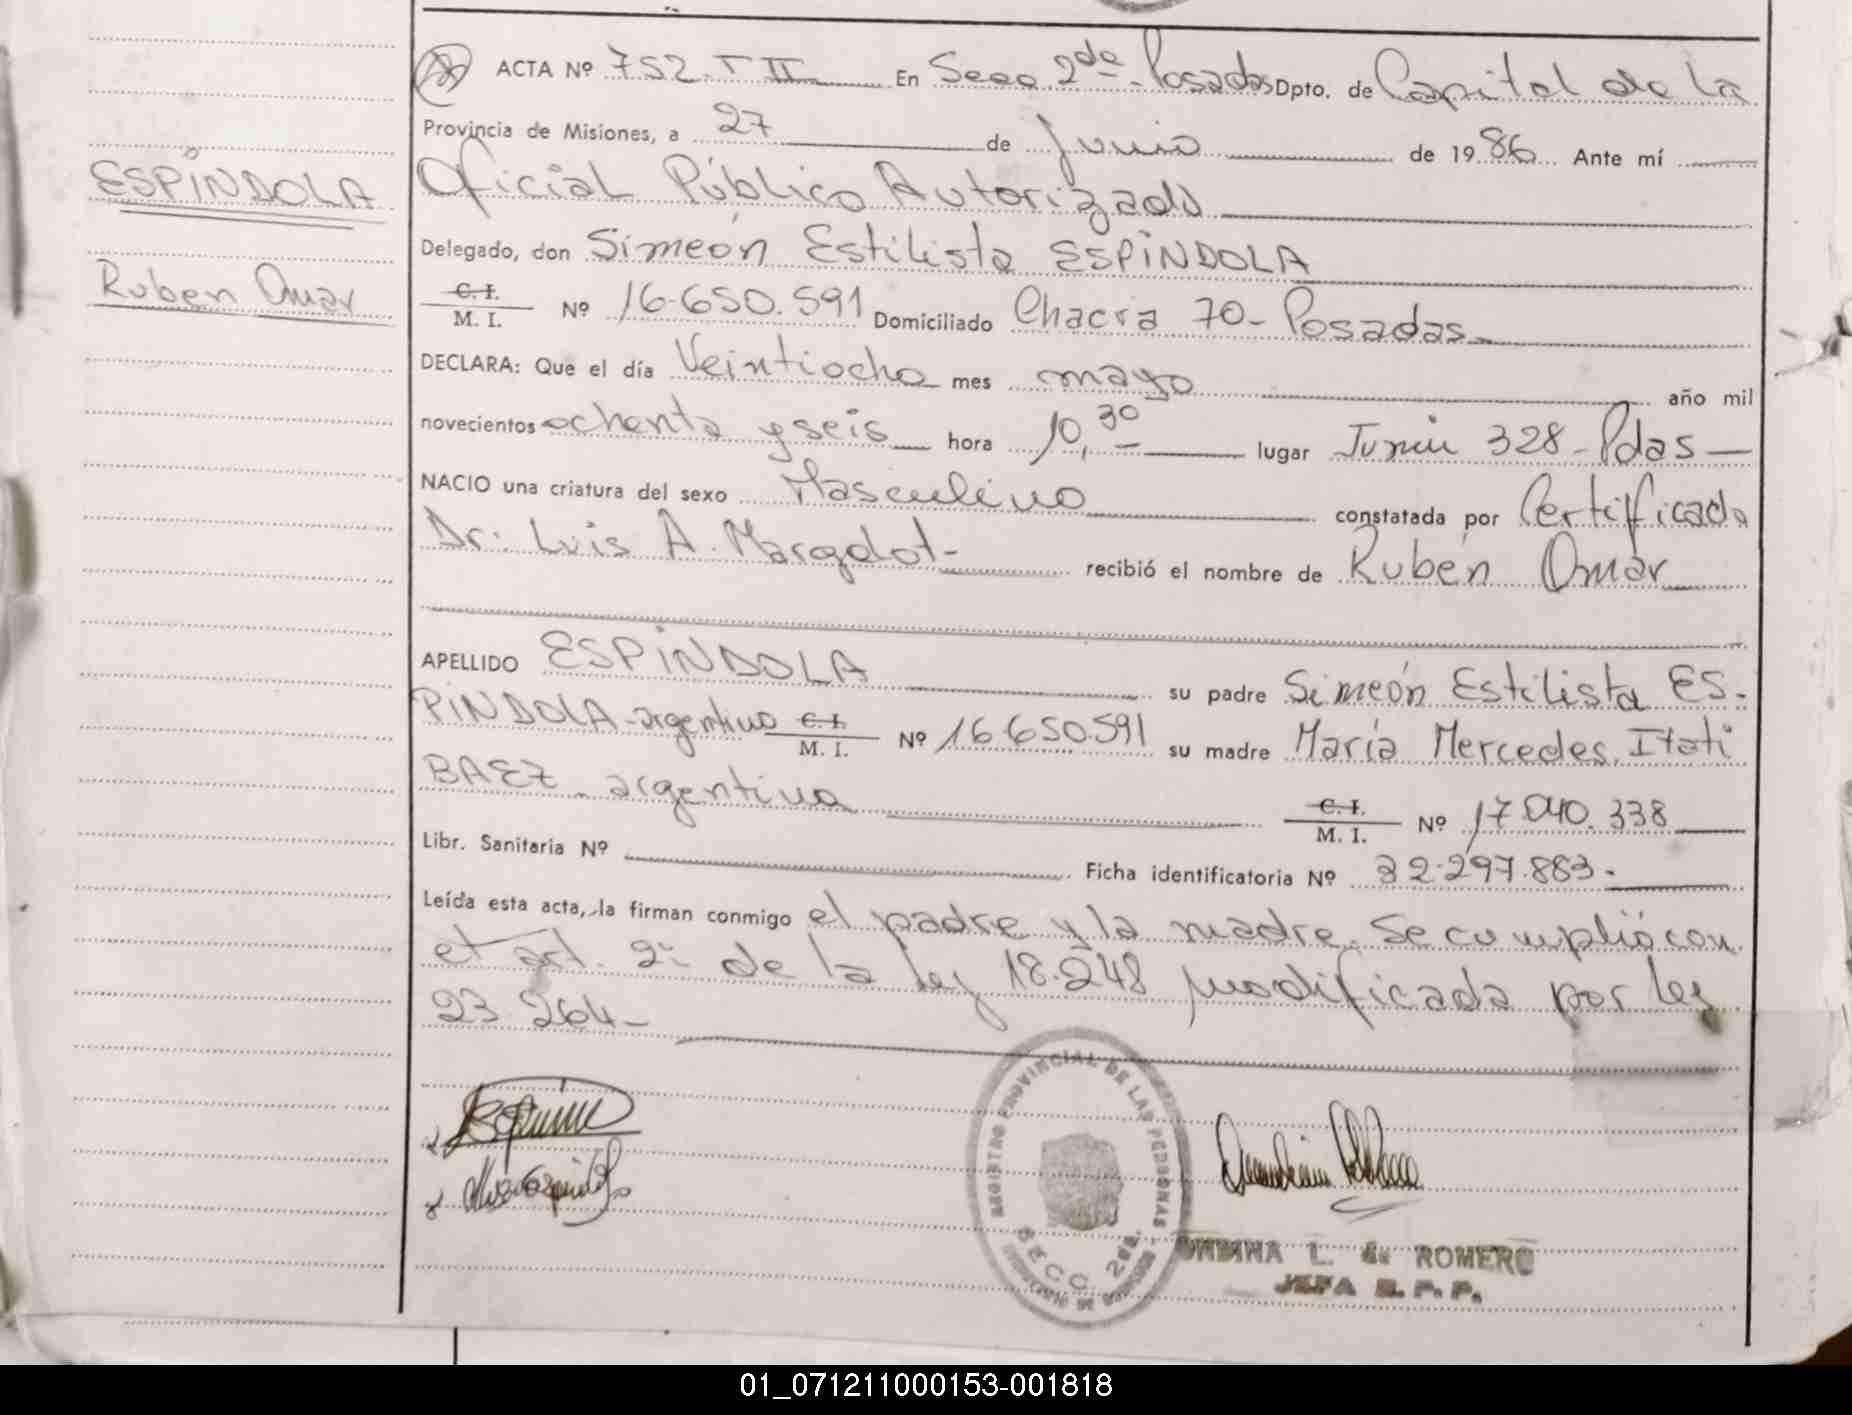 ESPÍNDOLA
Ruben Omar
ACTA Nº 752 T II En Secc 2da Posadas Dpto. de Capital de la
Provincia de Misiones, a 27 de Junio de 1986 Ante mí
Oficial Público Autorizado
Delegado, don Simeón Estilista ESPÍNDOLA
C. I.
M. I. Nº 16.650.591 Domiciliado Chacra 70 - Posadas
DECLARA: Que el día Veintiocho mes mayo año mil
novecientos ochenta y seis hora 10,30 lugar Junín 328 - Pdas
NACIO una criatura del sexo Masculino constatada por Certificado
Dr. Luis A. recibió el nombre de Rubén Omar
APELLIDO ESPÍNDOLA su padre Simeón Estilista ES-
PÍNDOLA - argentino C. I.
M. I. Nº 16650591 su madre María Mercedes Itatí
BAEZ - argentina C. I.
M. I. Nº 17.040.338
Libr. Sanitaria Nº Ficha identificatoria Nº 32.297.883.
Leída esta acta, la firman conmigo el padre y la madre. Se cumplió con
el art. 2º de la ley 18.248 modificada por ley
23.264 -
REGISTRO PROVINCIAL DE LAS PERSONAS
SECC. 2da.
ONDINA L. de ROMERO
JEFA R. P. P.
01_071211000153-001818